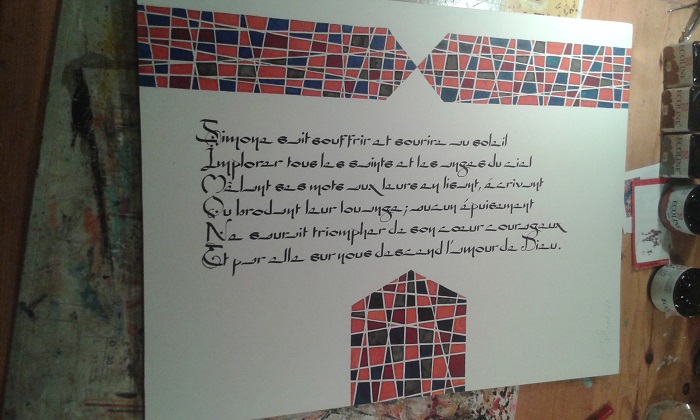 Simone sait souffrir et sourire au soleil
Implorer tous les saints et les anges du ciel
Mêlant ses mots aux leurs en lisant, écrivant
Ou brodant leur louange ; aucun épuisement
Ne saurait triompher de son cœur courageux
Et par elle sur nous descend l'amour de Dieu.